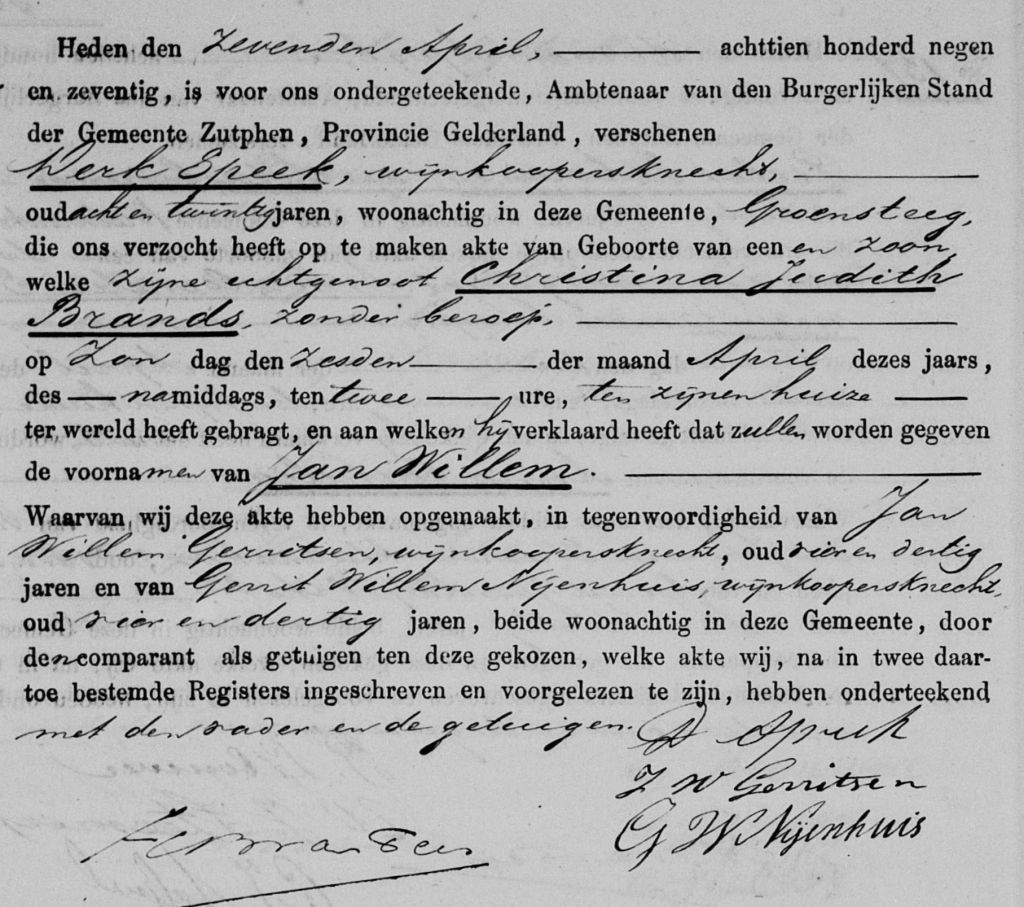 Heden den zevenden April, achttien honderd negen
en zeventig, is voor ons ondergeteekende, Ambtenaar van den Burgerlijken Stand
der Gemeente Zutphen, Provincie Gelderland, verschenen
Derk Speek, wijnkoopersknecht,
oud acht en twintig jaren, woonachtig in deze Gemeente, Groensteeg,
die ons verzocht heeft op te maken akte van Geboorte van een en zoon,
welke zijne echtgenoot Christina Judith
Brands, zonder beroep,
op Zon dag den zesden der maand April dezes jaars,
des namiddags, ten twee ure, ten zijnen huize
ter wereld heeft gebragt, en aan welken hij verklaard heeft dat zullen worden gegeven
de voornamen van Jan Willem.
Waarvan wij deze akte hebben opgemaakt, in tegenwoordigheid van Jan
Willem Gerritsen, wijnkoopersknecht, oud vier en dertig
jaren en van Gerrit Willem Nijenhuis, wijnkoopersknecht,
oud vier en dertig jaren, beide woonachtig in deze Gemeente, door
den comparant als getuigen ten deze gekozen, welke akte wij, na in twee daar-
toe bestemde Registers ingeschreven en voorgelezen te zijn, hebben onderteekend
met den vader en de getuigen.
D Speek
J W Gerritsen
G W Nijenhuis